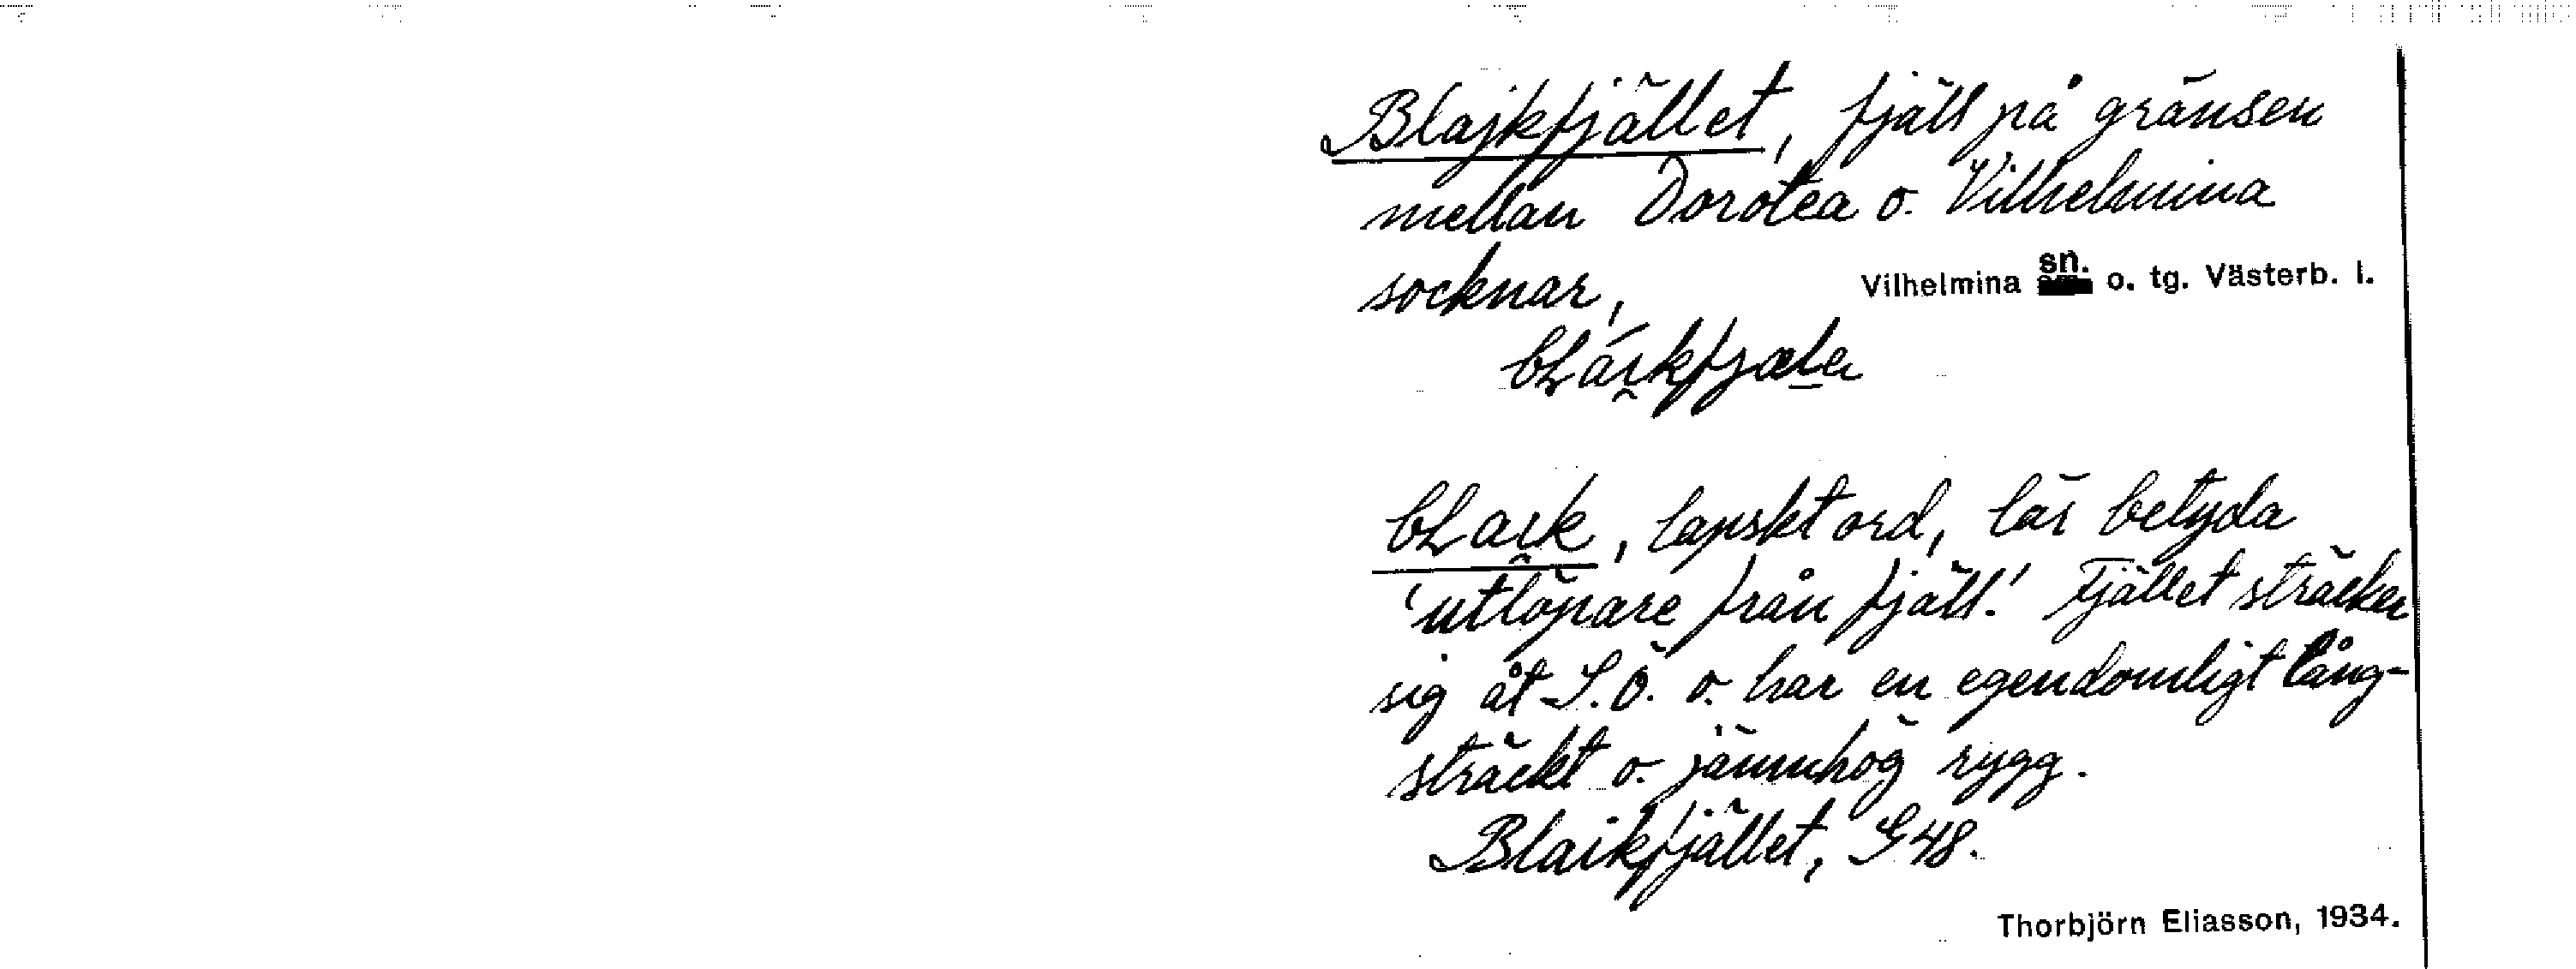 Blajkfjället, fjäll på gränsen
mellan Dorotea o. Vilhelmina
socknar,
Vilhelmina sn. o. tg. Västerb. l.
lapskt ord, lär betyda
'utlöpare från fjäll.' Fjället sträcker
sig åt S.Ö. o. har en egendomligt lång-
sträckt o. jämnhög rygg.
Blaikfjället, G48.
Thorbjörn Eliasson, 1934.